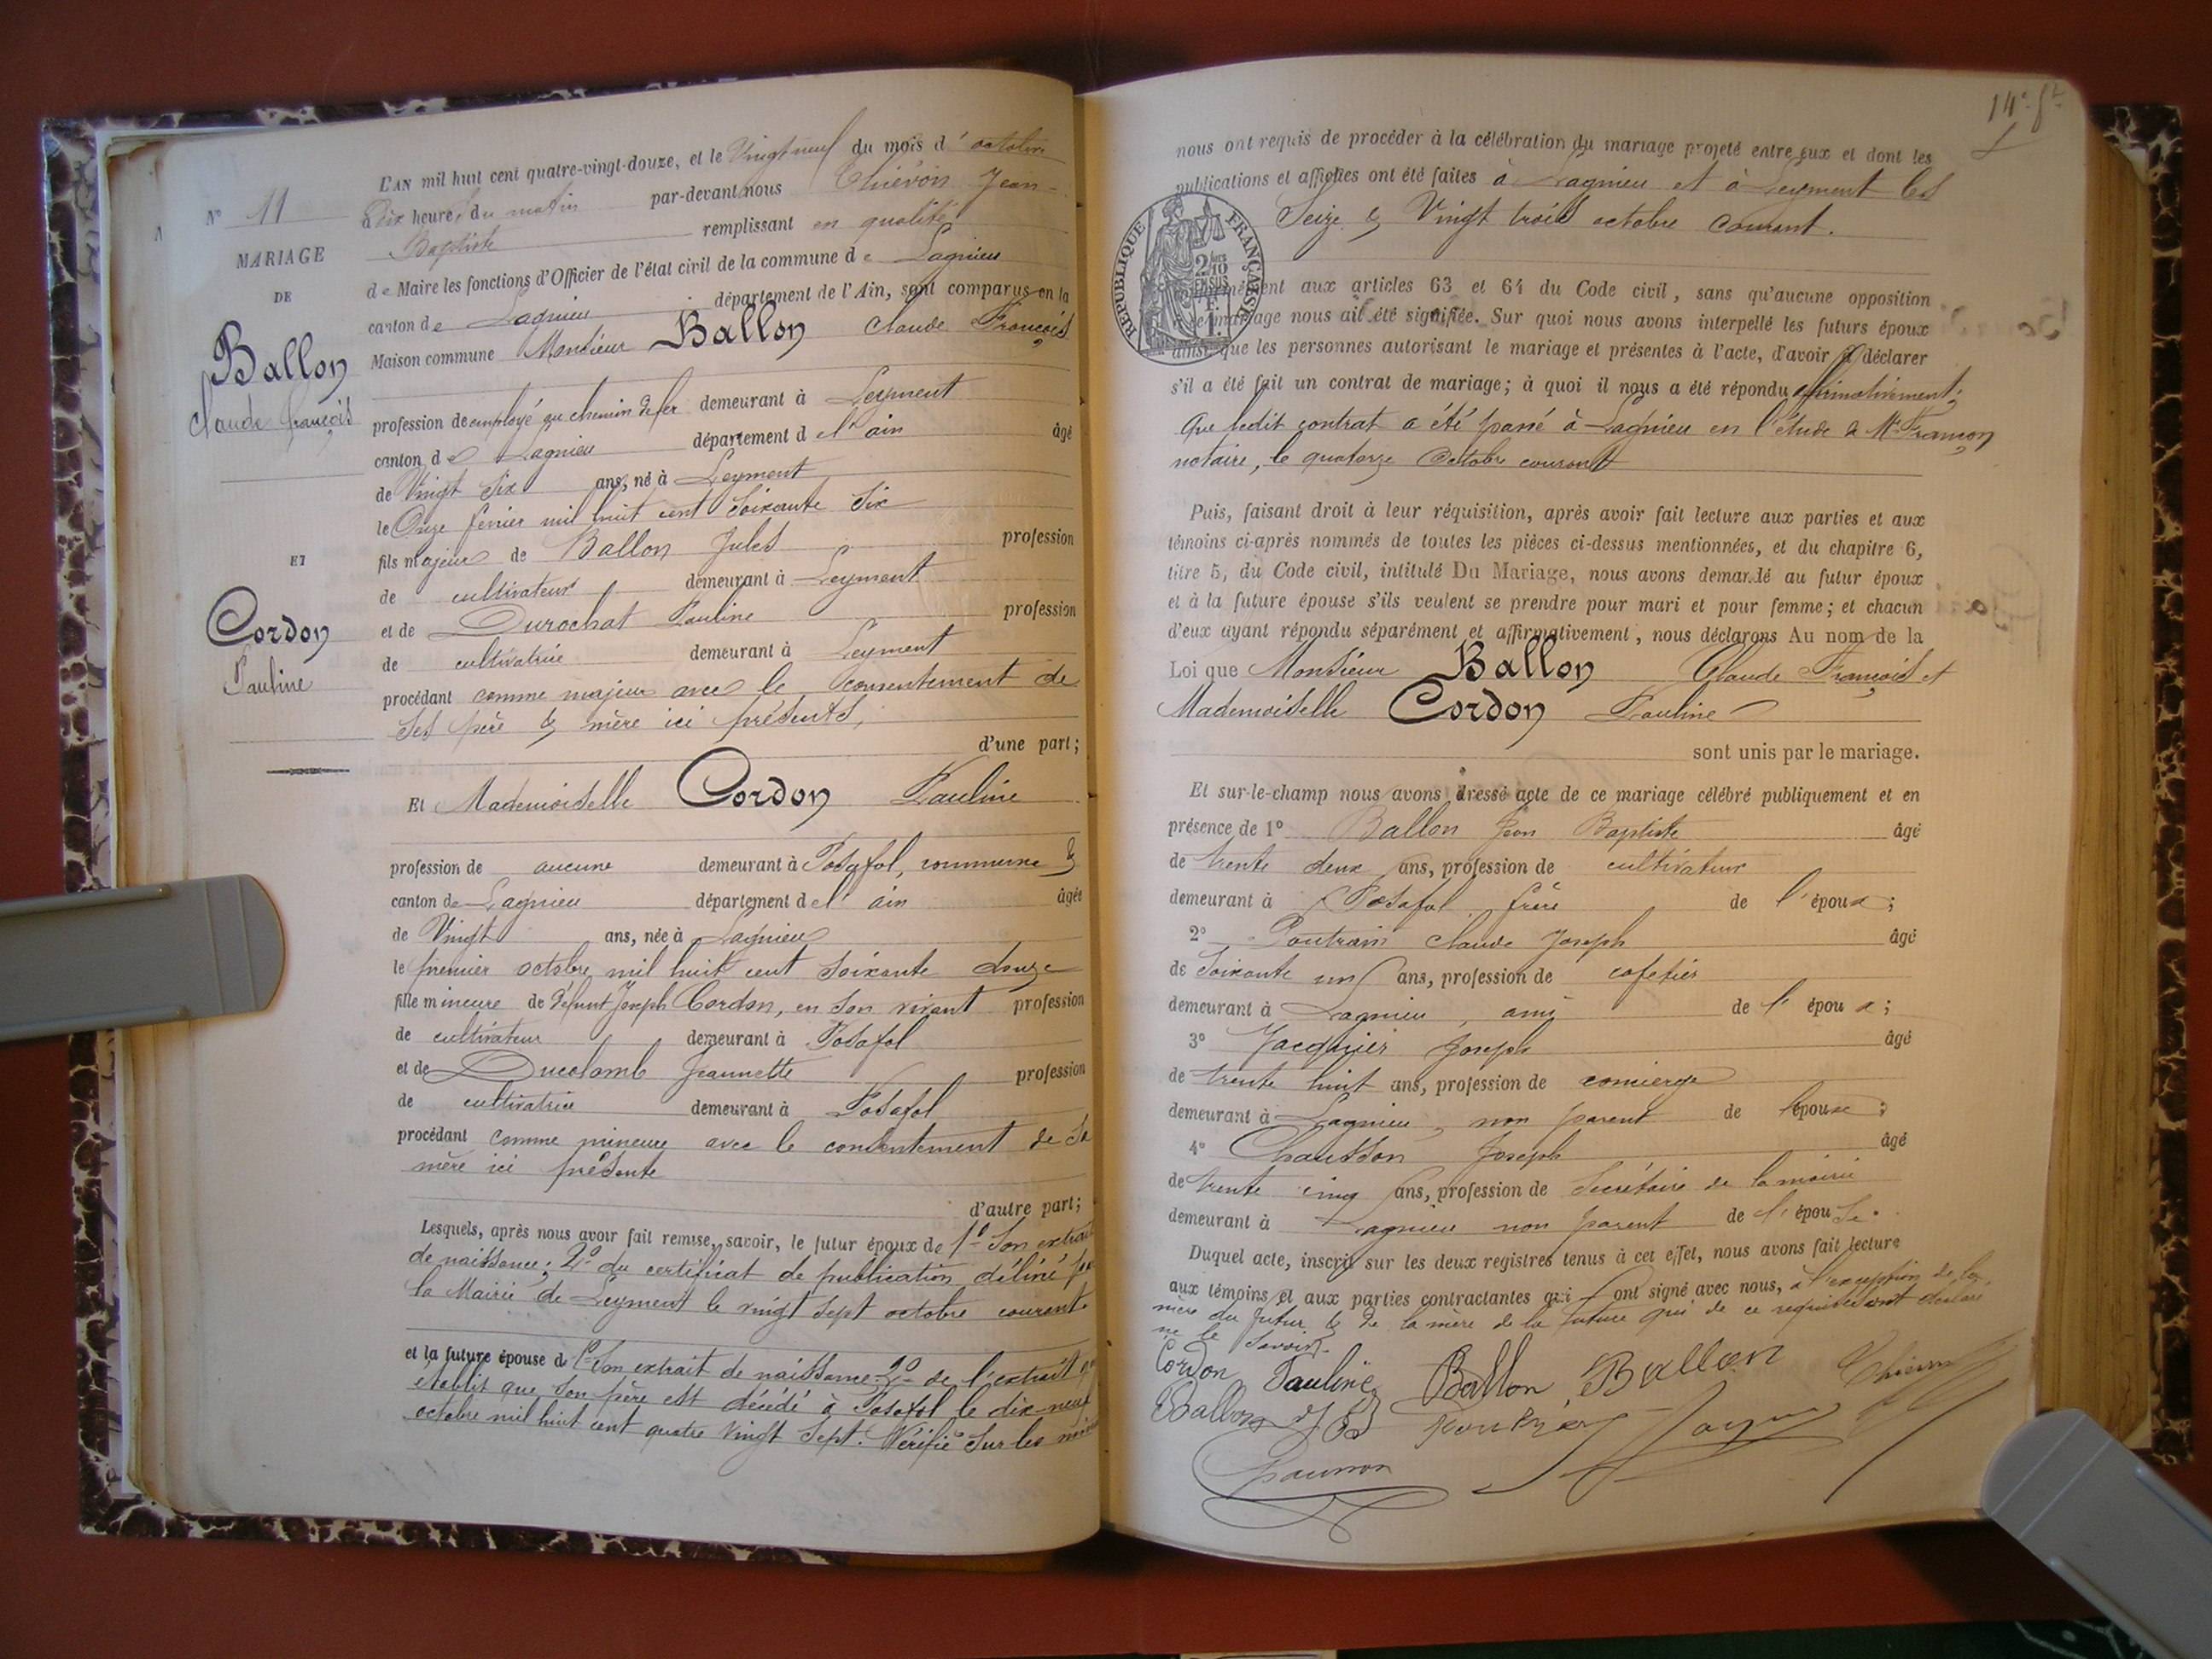 N° 11
MARIAGE
DE
Ballon
Claude François
ET
Cordon
Pauline
L'AN mil huit cent quatre-vingt-douze, et le Vingt neuf du mois d'octobre
à dix heures du matin par-devant nous Thiévon Jean-
Baptiste remplissant en qualité
de Maire les fonctions d'Officier de l'état civil de la commune de Lagnieu
canton de Lagnieu département de l'Ain, sont comparus en la
Maison commune Monsieur Ballon Claude François
profession de employé au chemin de fer demeurant à Leyment
canton de Lagnieu département de l'ain âgé
de Vingt Six ans, né à Leyment
le Onze fevrier mil huit cent Soixante Six
fils majeur de Ballon Jules profession
de cultivateur demeurant à Leyment
et de Durochat Pauline profession
de cultivatrice demeurant à Leyment
procédant comme majeur avec le consentement de
Ses père & mère ici présents,
d'une part;
Et Mademoiselle Cordon Pauline
profession de aucune demeurant à Posafol, commune &
canton de Lagnieu département de l'ain âgée
de Vingt ans, née à Lagnieu
le premier octobre mil huit cent Soixante douze
fille mineure de défunt Joseph Cordon, en Son vivant profession
de cultivateur demeurant à Posafol
et de Ducolomb Jeannette profession
de cultivatrice demeurant à Posafol
procédant comme mineure avec le consentement de Sa
mère ici présente
d'autre part;
Lesquels, après nous avoir fait remise, savoir, le futur époux de 1° Son extrait
de naissance; 2° du certificat de publication délivré par
la Mairie de Leyment le vingt Sept octobre courant.
et la future épouse de 1° Son extrait de naissance - 2° de l'extrait qui
établit que Son père est décédé à Posafol le dix-neuf
octobre mil huit cent quatre vingt Sept. Vérifié Sur les
14e ft
nous ont requis de procéder à la célébration du mariage projeté entre eux et dont les
publications et affiches ont été faites à Lagnieu et à Leyment les
Seize & Vingt trois octobre courant.
RÉPUBLIQUE FRANÇAISE
2/10 EN SUS
1 F.
aux articles 63 et 64 du Code civil, sans qu'aucune opposition
mariage nous ait été signifiée. Sur quoi nous avons interpellé les futurs époux
ainsi que les personnes autorisant le mariage et présentes à l'acte, d'avoir à déclarer
s'il a été fait un contrat de mariage; à quoi il nous a été répondu affirmativement;
Que ledit contrat a été passé à Lagnieu en l'étude de Me Françon
notaire, le quatorze Octobre courant
Puis, faisant droit à leur réquisition, après avoir fait lecture aux parties et aux
témoins ci-après nommés de toutes les pièces ci-dessus mentionnées, et du chapitre 6,
titre 5, du Code civil, intitulé Du Mariage, nous avons demandé au futur époux
et à la future épouse s'ils veulent se prendre pour mari et pour femme; et chacun
d'eux ayant répondu séparément et affirmativement, nous déclarons Au nom de la
Loi que Monsieur Ballon Claude François et
Mademoiselle Cordon Pauline
sont unis par le mariage.
Et sur-le-champ nous avons dressé acte de ce mariage célébré publiquement et en
présence de 1° Ballon Jean Baptiste âgé
de trente deux ans, profession de cultivateur
demeurant à Posafol, frère de l'époux;
2° Poutrain Claude Joseph âgé
de Soixante un ans, profession de cafetier
demeurant à Lagnieu, ami de l'époux;
3° Jacquier Joseph âgé
de trente huit ans, profession de concierge
demeurant à Lagnieu, non parent de l'épouse;
4° Chausson Joseph âgé
de trente cinq ans, profession de Secrétaire de la mairie
demeurant à Lagnieu non parent de l'épouse.
Duquel acte, inscrit sur les deux registres tenus à cet effet, nous avons fait lecture
aux témoins et aux parties contractantes qui ont signé avec nous, à l'exception de la
mère du futur & de la mère de la future qui de ce requises ont déclaré
ne le Savoir.
Cordon Pauline Ballon Ballon Thiévon
Ballon
Chausson